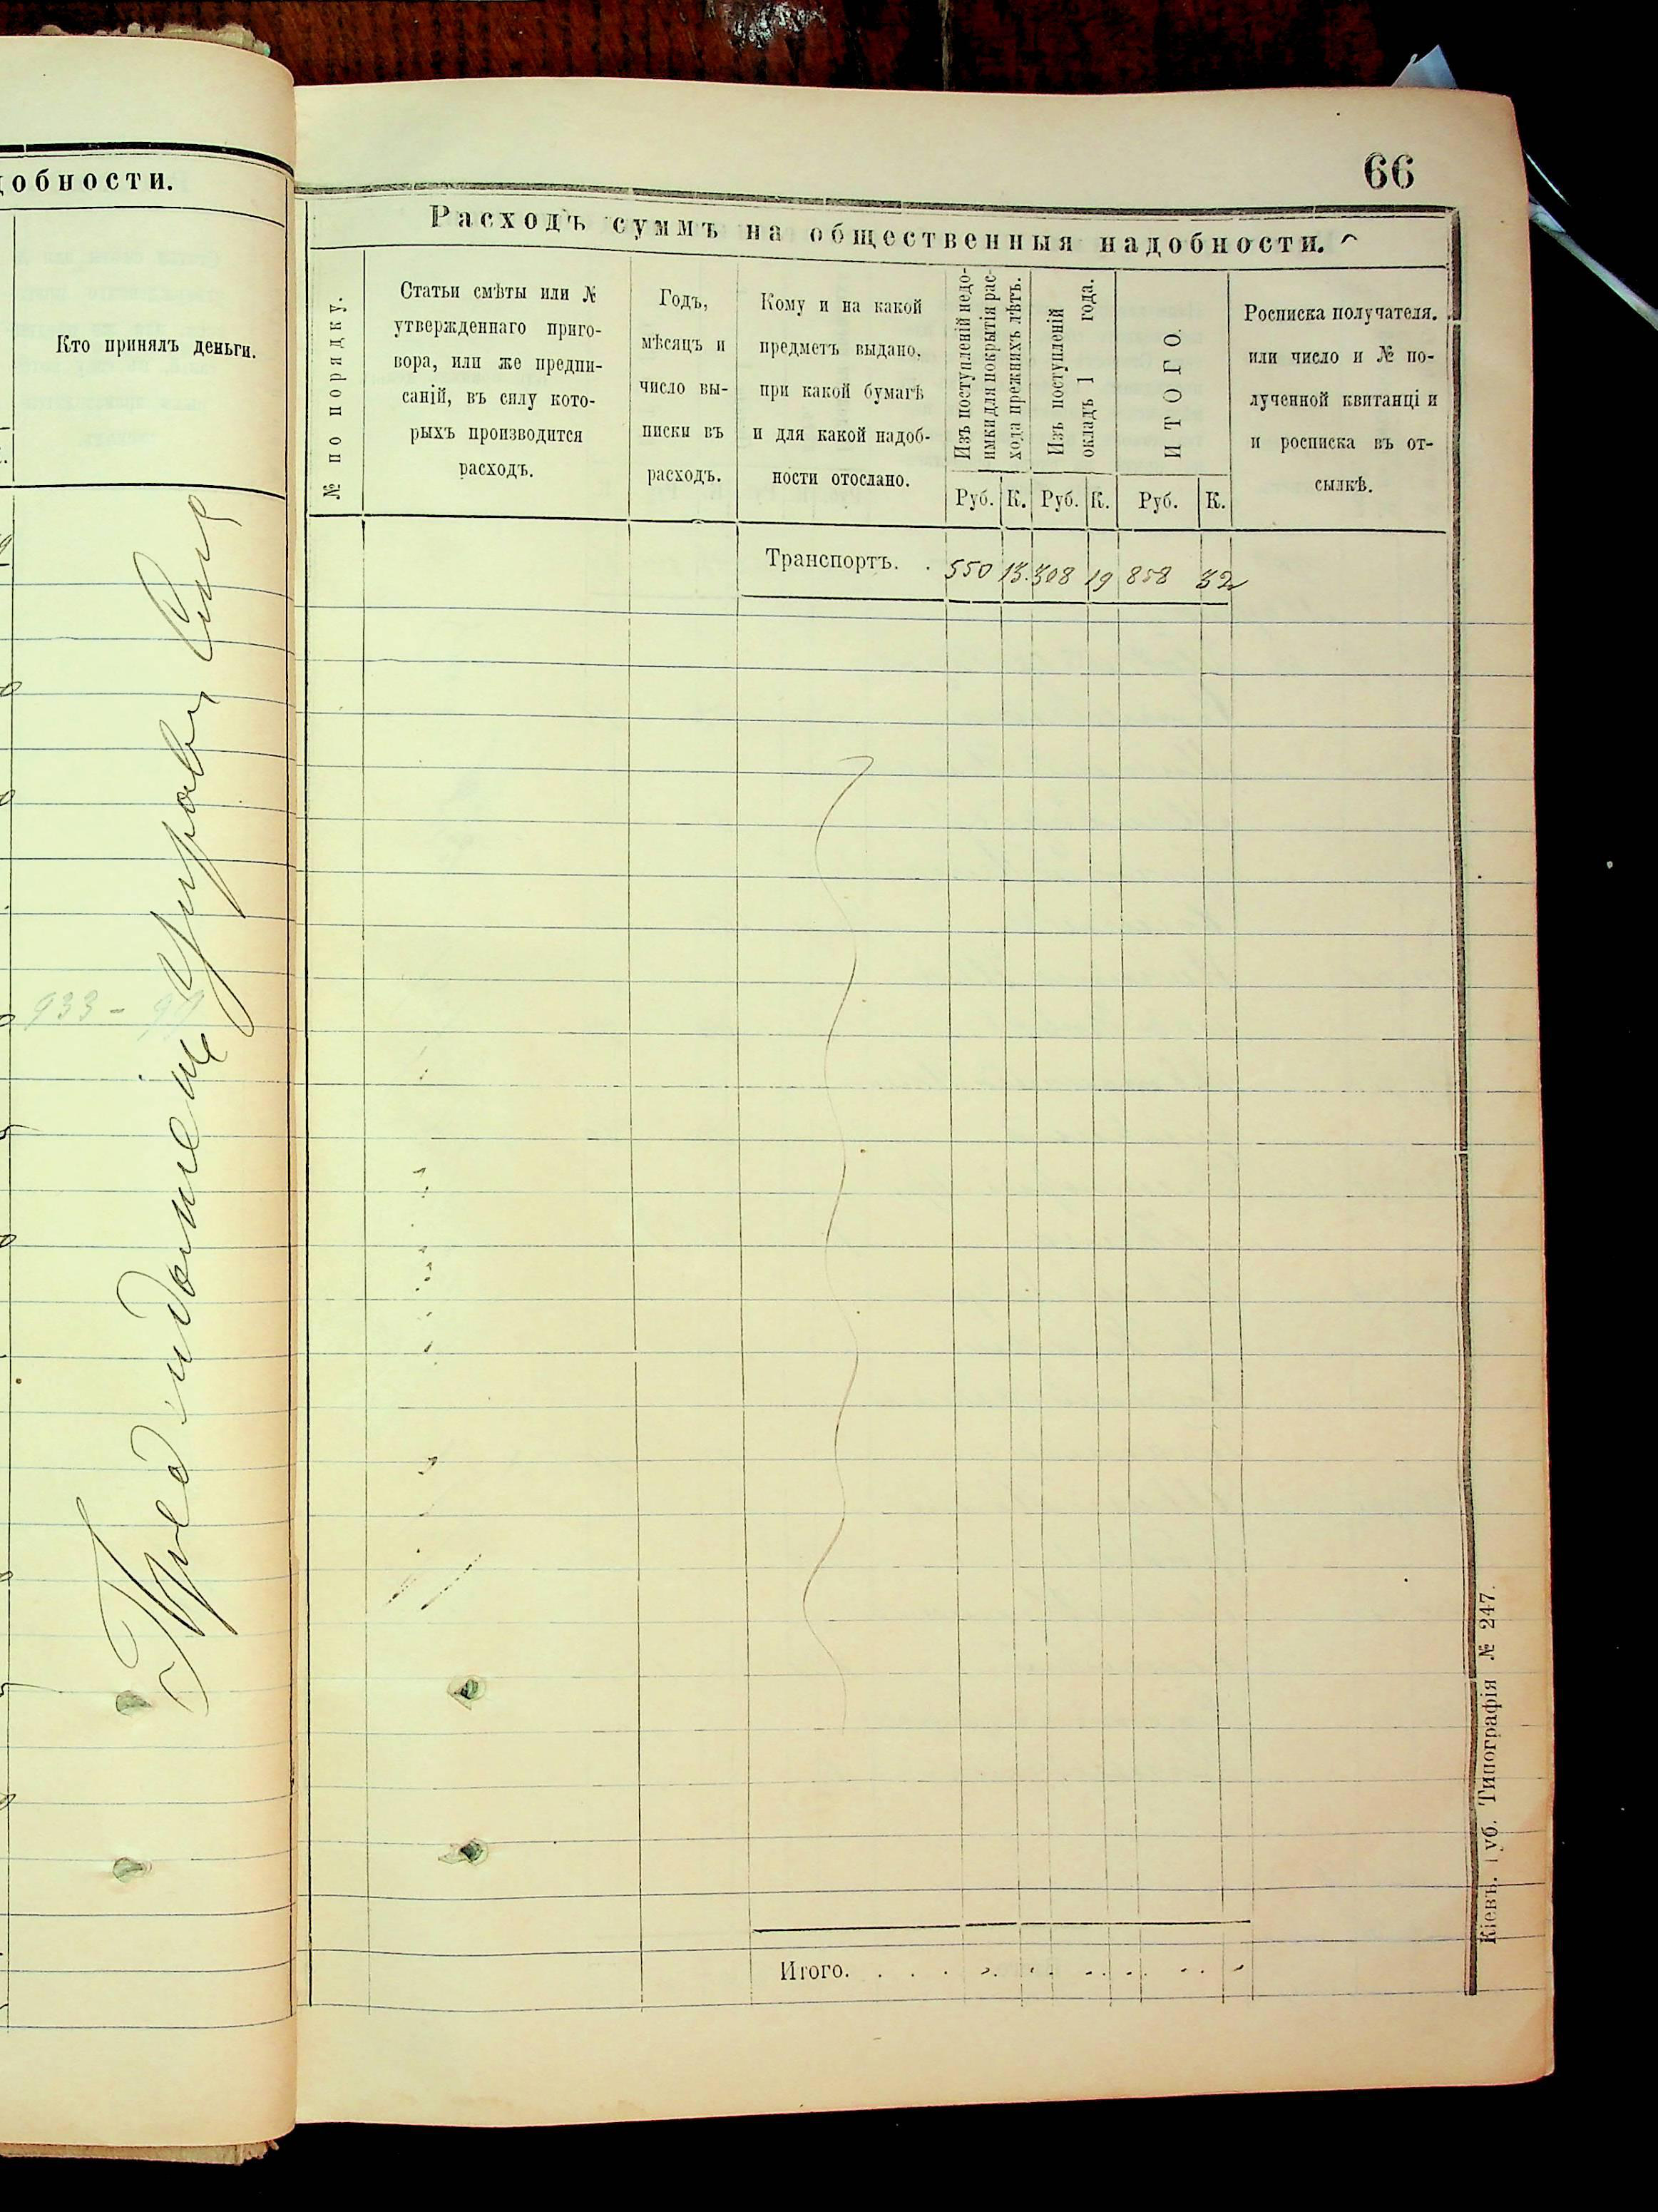 добности.
Кто принялъ деньги.
933 -
66
Расходъ суммъ на общественныя надобности.
№ по порядку.
Статьи смѣты или №
утвержденнаго приго-
вора, или же предпи-
саній, въ силу кото-
рыхъ производится
расходъ.
Годъ,
мѣсяцъ и
число вы-
писки въ
расходъ.
Кому и на какой
предметъ выдано,
при какой бумагѣ
и для какой надоб-
ности отослано.
Изъ поступленій недо-
имки для покрытія рас-
хода прежнихъ лѣтъ.
Изъ поступленій
окладъ 1 года.
ИТОГО.
Росписка получателя.
или число и № по-
лученной квитанці и
и росписка въ от-
сылкѣ.
Руб. К. Руб. К. Руб. К.
Транспортъ. . 550 13. 308 19 858 32
Итого. . . .
Кіевъ. Губ. Типографія № 247.